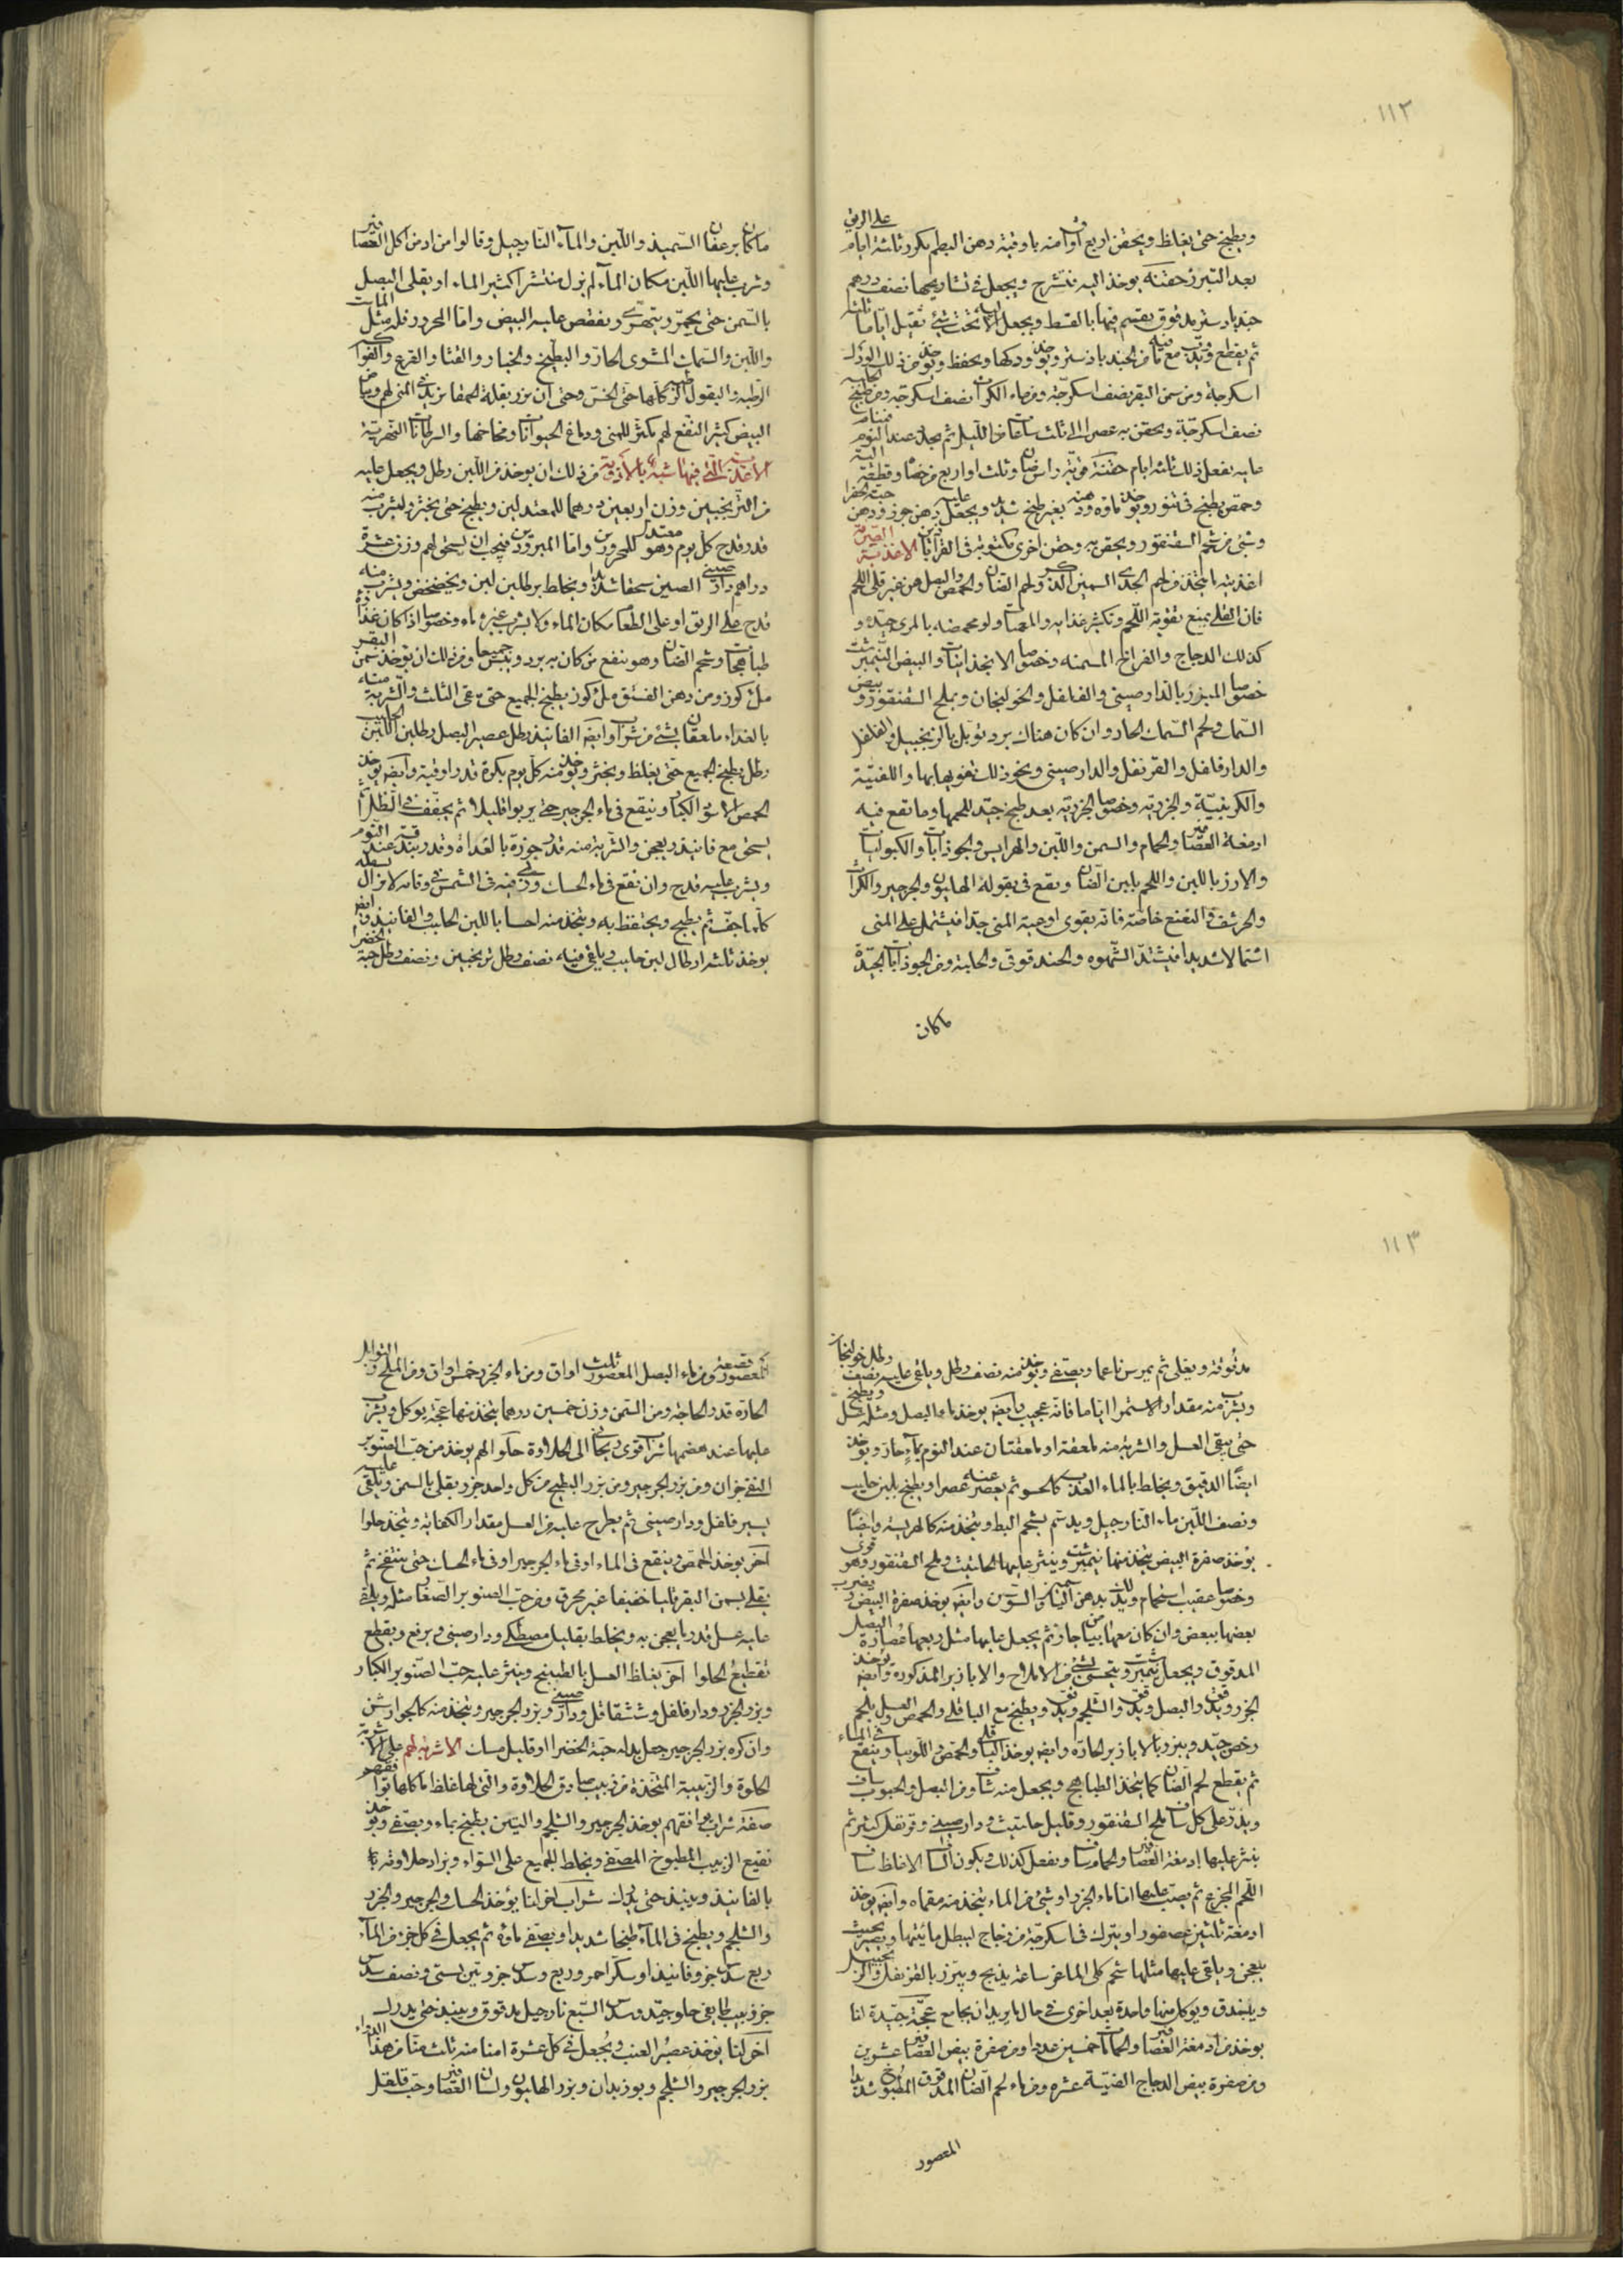 ١١٢
على الريق
ويطبخ حتى يغلظ ويحقن اربع اواق منه باوقية دهن البطم يكرر ثلثة ايام
بعد التبرز حقنة يوخذ الية فتشرح ويجعل في تشاريحها نصف درهم
جندبادستر مدقوق يقسم فيها بالقسط ويجعل الالية تحت شئ ثقيل اياما ثلثة
ثم يقطع ويذوب مع ما فيه من الجندبادستر ويوخذ ودكها ويحفظ ويوخذ من ذلك الودك
اسكرجة ومن سمن البقر نصف اسكرجة ومن ماء الكراث نصف اسكرجة ومن طبيخ الحلبة
نصف اسكرجة ويحقن به عصرا الى ثلث ساعات من الليل ثم يجدد عند النوم فينام
عليه يفعل ذلك ثلثة ايام حقنة قوية راس ضان وثلث او اربع من خصا وقطعة الية
وحمص يطبخ في تنور ويوخذ ماؤه ودهنه بغير طبخ شديد ويجعل عليه دهن جوز ودهن حبة الخضرا
وشئ من شحم السقنقور ويحقن به وحقن اخرى مكتوبة في القراباذين الاغذية الصرفة
اغذيته ما يتخذ من لحم الجدى السمين الذكر ولحم الضان والحمص والبصل من غير قلى اللحم
فان القلى يمنع تقوية اللحم وتكثير غذائه والمصا ولو محمضه بالمرى جيدة و
كذلك الدجاج والفراخ المسمنه وخصوصا الاسفيذباجات والبيض النيمبرشت
خصوصا المبزر بالدارصينى والفلفل والخولنجان وبملح السقنقور وبيض
السمك ولحم السمك الحار وان كان هناك برد توبل بالزنجبيل والفلفل
والدارفلفل والقرنفل والدارصينى ونحو ذلك تفويها بها واللفتية
والكرنبية والجزرية وخصوصا الجزرية بعد طبخ جيد للحمها وما تقع فيه
ادمغة العصافير والحمام والسمن واللبن والهرايس والجوذابات والكبولبات
والارز باللبن واللحم بلبن الضان ويقع في بقوله الهليون والجرجير والكراث
والحرشف والنعنع خاصة فانه يقوى اوعية المنى جدا فيشتمل على المنى
اشتمالا شديدا فيشتد الشهوه والحندقوقى والحلبة ومن الجوذابات الجيدة
ماكان
ما كان برعفان السميذ واللبن والماء النارجيل وقالوا من ادمن اكل العصافير
وشرب عليها اللبن مكان الماء لم يزل منتشرا كثير الماء او يقلى البصل
بالسمن حتى يحمر ويتهرى ويفقص عليه البيض واما المحرور فله مثل الماست
واللبن والسمك المشوى الحار والبطيخ والخيار والقثا والقرع والفواكه
الرطبه والبقول الرطبة كلها حتى الخس وحتى ان بزر بقلة الحمقا يزيد في المنى لهم وبياض
البيض كثير النفع لهم يكثر للمنى ودماغ الحيوانات ومخاخها والسرطانات النهرية
الاغذية التى فيها شبه بالادوية من ذلك ان يوخذ من اللبن رطل ويجعل عليه
من الترنجبين وزن اربعين درهما للمعتدلين ويطبخ حتى يخثر ويشرب منه
قدر قدح كل يوم وهو معتدل للمحرورين واما المبرودين فيجب ان يسحق لهم وزن عشرة
دراهم دارصينى الصين سحقا شديدا ويخلط برطلين لبن ويخضخض ويشرب منه
قدح على الريق او على الطعام مكان الماء ولا يشرب غيره ماء وخصوصا اذا كان غذاؤه
طباهجات وشحم الضان وهو ينفع من كان به برد ويبس جميعا ومن ذلك ان يوخذ سمن البقر
ملء كوز ومن دهن الفستق ملء كوز يطبخ الجميع حتى يبقى الثلث والشربة منه
بالغداة ملعقتان بشئ من شراب او ايضا الفانيذ رطل عصير البصل رطلين اللبن الحليب
رطل يطبخ الجميع حتى يغلظ ويخثر ويوخذ منه كل يوم بكرة قدر اوقية وايضا يوخذ
الحمص الاسود الكبار وينقع في ماء الجرجير حتى يربو قليلا ثم يجفف في الظل ثم
يسحق مع فانيذ ويعجن والشربة منه قدر جوزة بالغداة وقدر بندقة عند النوم
ويشرب عليه قدح وان نقع في ماء الحسك وربى فيه في الشمس في وقته لا يزال يسقاه
كلما جف ثم يطبخ ويحتفظ به ويتخذ منه احسا باللبن الحليب والفانيذ وايضا
يوخذ ثلثة ارطال لبن حليب ويلقى فيه نصف رطل ترنجبين ونصف رطل حبة الخضرا
١١٣
مدقوقة ويغلى ثم يمرس ناعما ويصفى ويوخذ منه نصف رطل ويلقى عليه نصف رطل خولنجان
ويشرب منه مقدار الاستمرا اياما فانه عجيب وايضا يوخذ ماء البصل ومثله عسل ويطبخ
حتى يبقى العسل والشربة منه ملعقة او ملعقتان عند النوم بماء حار ويوخذ
ايضا الدقيق ويخلط بالماء العذب كالحسو ثم يعصر عنه عصرا ويطبخ بلبن حليب
ونصف اللبن ماء النارجيل ويدسم بشحم البط ويتخذ منه كالهريسة وايضا
يوخذ صفرة البيض يتخذ منها نيمبرشت وينثر عليها الحلتيت وملح السقنقور وهو قوى
وخصوصا عقيب استحمام وتدلك بدهن الياسمين والسوسن وايضا يوخذ صفرة البيض ويضرب
بعضها ببعض وان كان معها من بياض جاز ثم يجعل عليها مثل ربعها عصارة البصل
المدقوق ويجعل نيمبرشت ويتحسى بشئ من الاملاح والابازير المذكورة وايضا يوخذ
الجزر ويدقق والبصل ويدقق والشلجم ويدقق ويطبخ مع الباقلى والحمص والعسل بلحم
رخص جيد ويبزر بالابازير الحاره وايضا يوخذ الباقلى والحمص واللوبيا وينقع في الماء
ثم يقطع لحم الضان كما يتخذ الطباهج ويجعل منه ساف ومن البصل والحبوب ساف
ويذر على كل ساف ملح السقنقور وقليل حلتيت ودارصينى وقرنفل كثير ثم
ينثر عليها ادمغة العصافير والحمام ساف ويفعل كذلك ويكون الساف الاغلظ ساف
اللحم المجزع ثم يصب عليها اما ماء الجزر او شئ من الماء يتخذ منه مغمومة وايضا يوخذ
ادمغة ثلثين عصفورا ويترك في اسكرجة من زجاج ليبطل مائيتها ويصير بحيث
يعجن ويلقى عليها مثلها شحم كلى الماعز ساعة يذبح ويبزر بالقرنفل والزنجبيل
ويبندق ويوكل منها واحدة بعد اخرى في حال ما يريد ان يجامع عجة جيدة لنا
يوخذ من ادمغة العصافير والحمامات خمسين عددا ومن صفرة بيض العصافير عشرين
ومن صفرة بيض الدجاج الفتية عشره ومن ماء لحم الضان المدقوق المطبوخ شديدا
المعصور
المعصور قصعة ومن ماء البصل المعصور ثلث اواق ومن ماء الجزر خمس اواق ومن الملح والتوابل
الحاره قدر الحاجة ومن السمن وزن خمسين درهما يتخذ منها عجة يوكل ويشرب
عليها عند هضمها شراب قوى ريحانى الى الحلاوة حلوا لهم يوخذ من حب الصنوبر
النقى جزان ومن بزر الجرجير ومن بزر البطيخ من كل واحد جزء ويقلى بالسمن ويلقى عليه
يسير فلفل ودارصينى ثم يطرح عليه من العسل مقدار الكفاية ويتخذ حلوا
آخر يوخذ الحمص وينقع في الماء او في ماء الجرجير او في ماء الحسك حتى ينتفخ ثم
يقلى بسمن البقر قليا خفيفا غير محرق ومن حب الصنوبر الصغار مثله ويلقى
عليه عسل قدر ما يعجن به ويخلط بقليل مصطكى ودارصينى ويرفع ويقطع
تقطيع الحلوا آخر يغلظ العسل بالطبيخ وينثر عليه حب الصنوبر الكبار
وبزر الجزر ودارفلفل وششقاقل ودارصينى وبزر الجرجير ويتخذ منه كالجوارشن
وان كره بزر الجرجير جعل بدله حبة الخضرا او قليل مسك الاشربة لهم على الاشربة
الحلوة والزبيبة المتخذة من زبيب صادق الحلاوة والتى لها غلظ ما كلها توافقهم
صفة شراب يوافقهم يوخذ الجرجير والشلجم والتين يطبخ بماء ويصفى ويوخذ
نقيع الزبيب المطبوخ المصفى ويخلط الجميع على السواء ويزاد حلاوته
بالفانيذ وينبذ حتى يدرك شراب اخر لنا يؤخذ الحسك والجرجير والجزر
والشلجم ويطبخ في الماء طبخا شديدا ويصفى ماؤه ثم يجعل في كل جزء من الماء
ربع سدس جزو فانيذ او سكر احمر وربع وسدس جزو تين بستى ونصف سدس
جزو زبيب طايفى حلو جيد وسدس السبع نارجيل مدقوق وينبذ حتى يدرك
آخر لنا يوخذ عصير العنب ويجعل في كل عشرة امنا منه ثلث منا من هذا الدواء
بزر الجرجير والشلجم وبوزيدان وبزر الهليون ولسان العصافير وحب قلقل